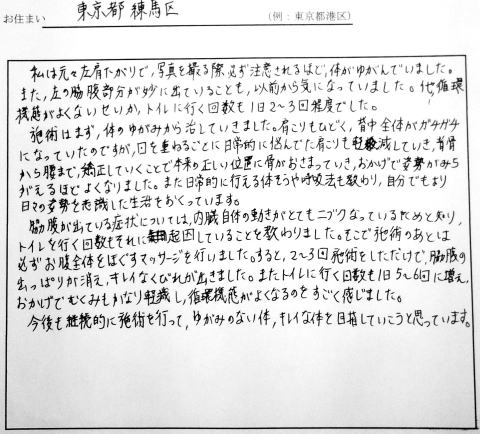 お住まい 東京都 練馬区 (例：東京都港区)
私は元々左肩たがりで，写真を撮る際必ず注意されるほど，体がゆがんでいました。
また，左の脇腹部分が妙に出ていることも，以前から気になっていました。他，循環
機感がよくないせいか，トイレに行く回数も1日2～3回程度でした。
施術はまず，体のゆがみから治していきました。肩こりもひどく，背中全体がガチガチ
になっていたのですが，回を重ねるごとに日常的に悩んでた肩こりも軽減していき，背骨
から腰まで，矯正していくことで本来の正しい位置に骨がおさまっていき，おかげで姿勢がみち
がえるほどよくなりました。また日常的に行える体そうや呼吸法も教わり，自分でもより
日々の姿勢を意識した生活をおくっています。
脇腹が出ている症状については，内臓自体の動きがとてもニブくなっているためと知り，
トイレを行く回数もそれに起因していることを教わりました。そこで施術のあとは
必ずお腹全体をほぐすマッサージを行いました。すると，2～3回施術をしただけで，脇腹の
出っぱりが消え，キレイなくびれが出きました。またトイレに行く回数も1日5～6回に増え，
おかげでむくみもかなり軽減し，循環機感がよくなるのをすごく感じました。
今後も継続的に施術を行って，ゆがみのない体，キレイな体を目指していこうと思っています。